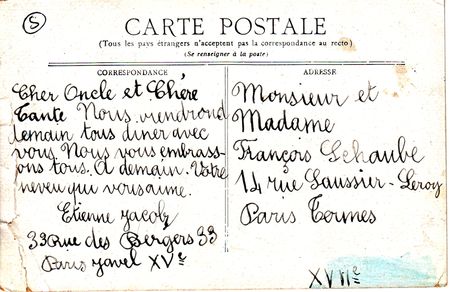 5
CARTE POSTALE
(Tous les pays étrangers n'acceptent pas la correspondance au recto)
(Se renseigner à la poste)
CORRESPONDANCE
Cher Oncle et Chère
Tante Nous viendrond
demain tous diner avec
vous. Nous vous embrass-
ons tous. A demain. Votre
neveu qui vous aime.
Etienne Jacob
33 Rue des Bergers 33
Paris Javel XVe
ADRESSE
Monsieur et
Madame
François Schaube
14 rue Saussier-Leroy
Paris Termes
XVIIe